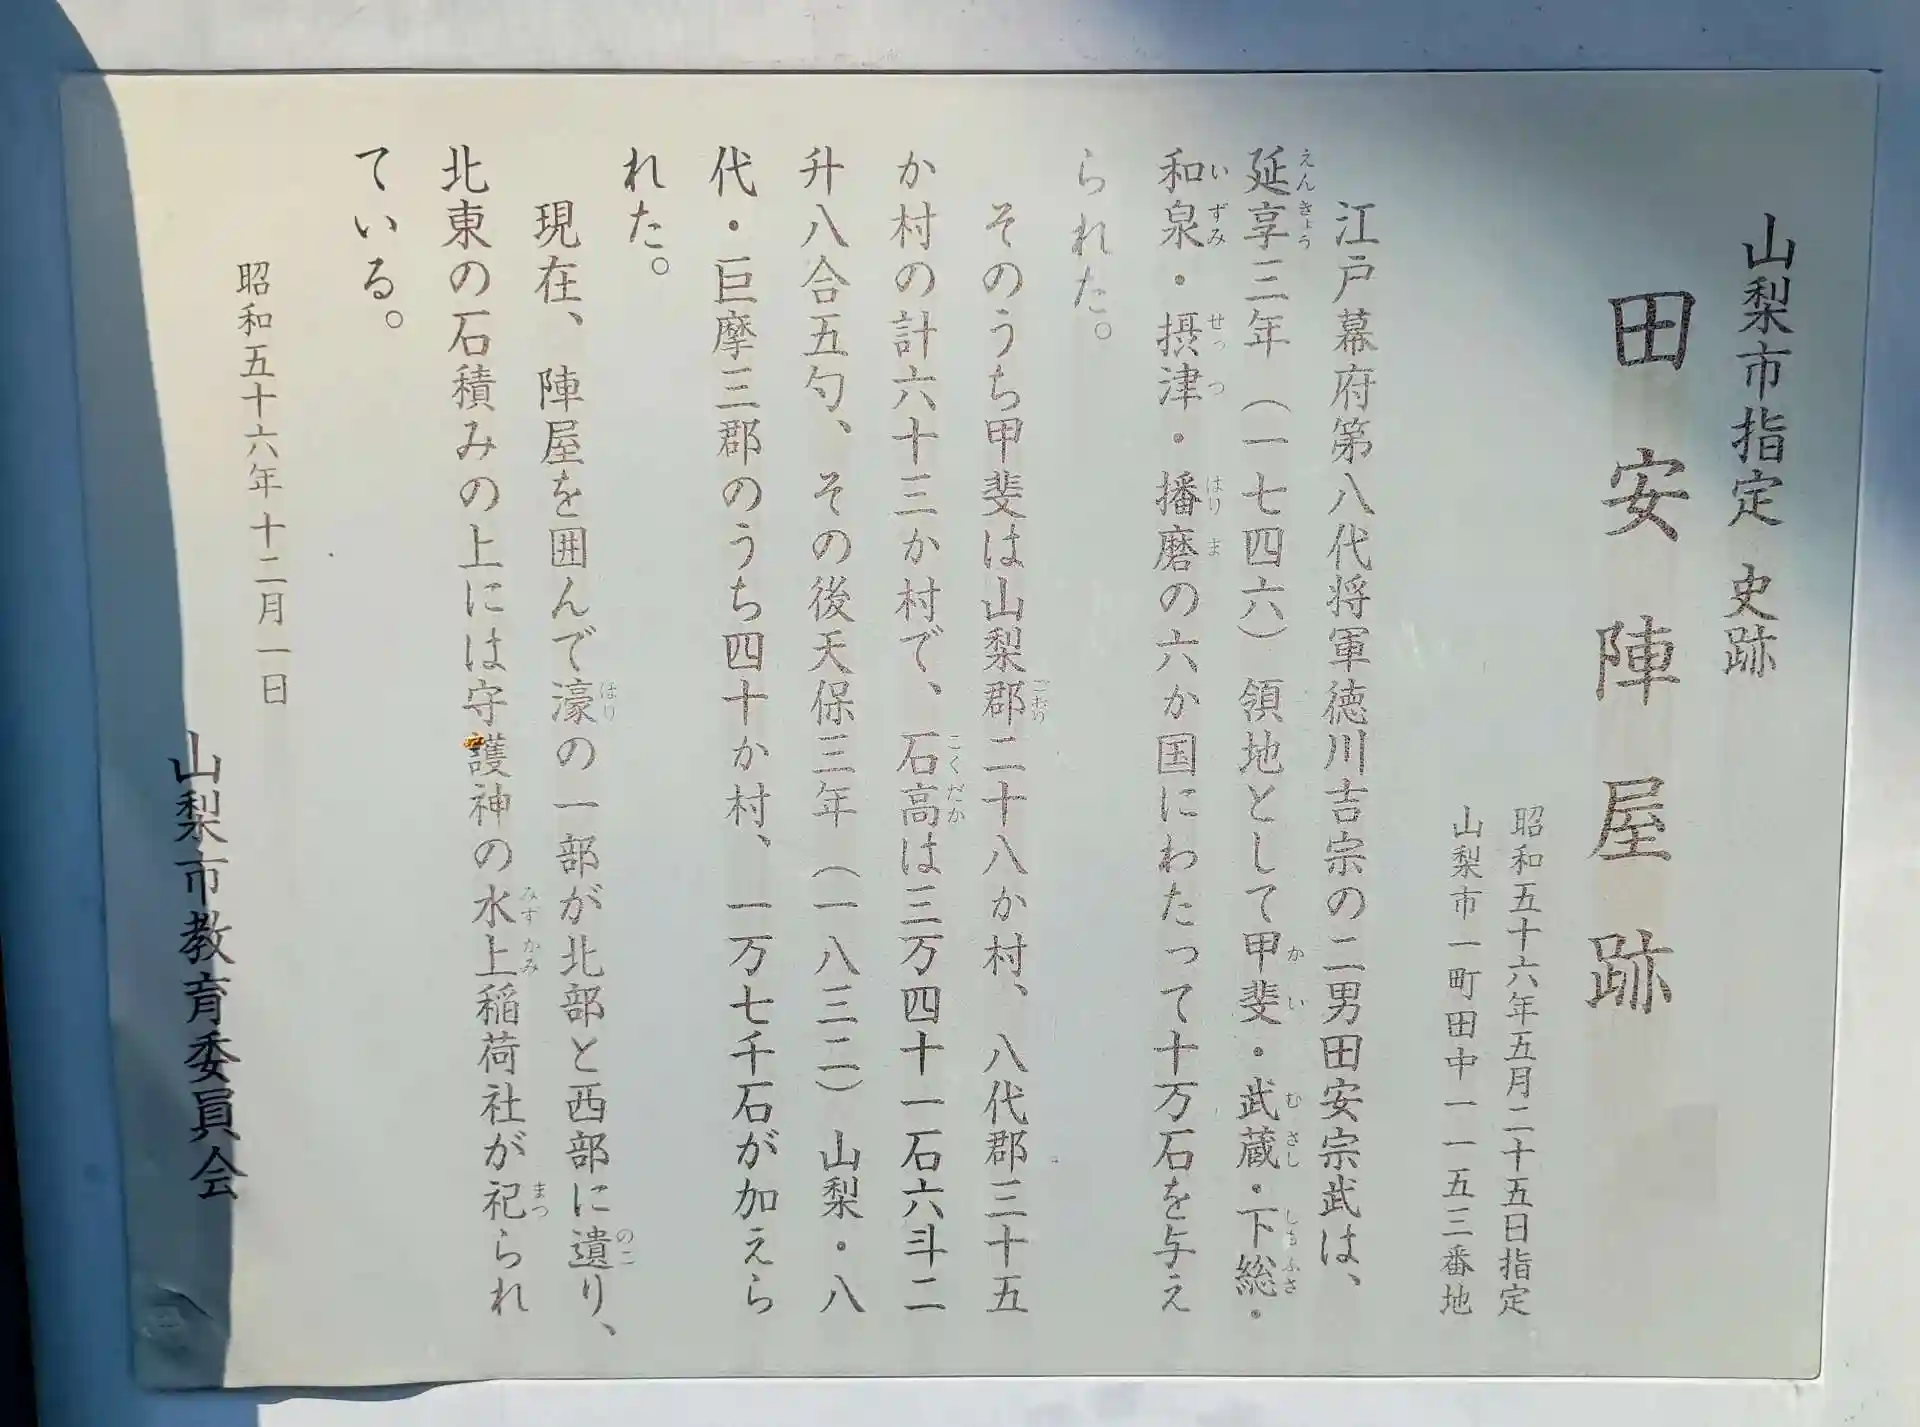 山梨市指定 史跡
田安陣屋跡
昭和五十六年五月二十五日指定
山梨市一町田中一一五三番地
江戸幕府第八代将軍徳川吉宗の二男田安宗武は、
延享三年（一七四六）領地として甲斐・武蔵・下総・
えんきょう かい むさし しもふさ
和泉・摂津・播磨の六か国にわたって十万石を与え
いずみ せっつ はりま
られた。
そのうち甲斐は山梨郡二十八か村、八代郡三十五
ごおり
か村の計六十三か村で、石高は三万四十一石六斗二
こくだか
升八合五勺、その後天保三年（一八三二）山梨・八
代・巨摩三郡のうち四十か村、一万七千石が加えら
れた。
現在、陣屋を囲んで濠の一部が北部と西部に遺り、
ほり のこ
北東の石積みの上には守護神の水上稲荷社が祀られ
みずかみ まつ
ている。
昭和五十六年十二月一日
山梨市教育委員会